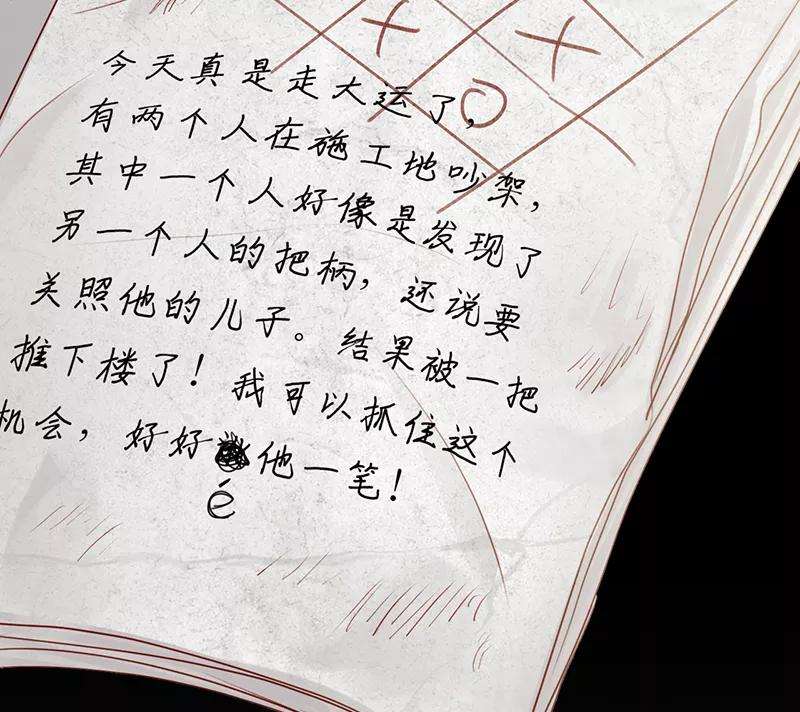 今天真是走大运了,
有两个人在施工地吵架,
其中一个人好像是发现了
另一个人的把柄,还说要
关照他的儿子。结果被一把
推下楼了!我可以抓住这个
机会,好好他一笔!
é